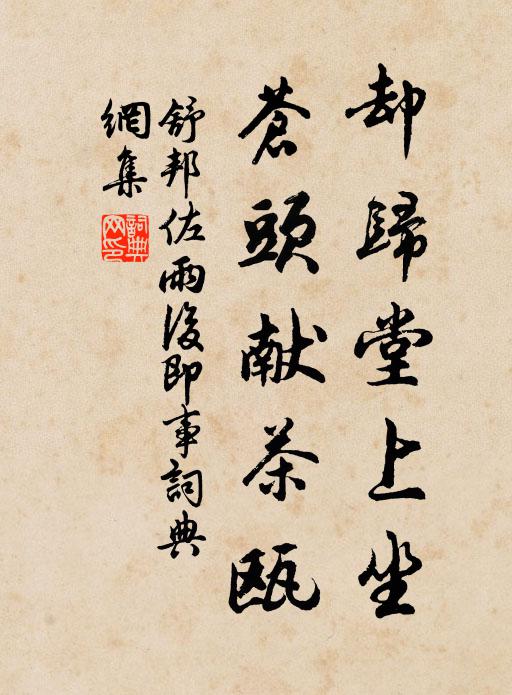 却歸堂上坐
蒼頭献茶甌
舒邦佐雨後即事詞典
網集
詞典
网印